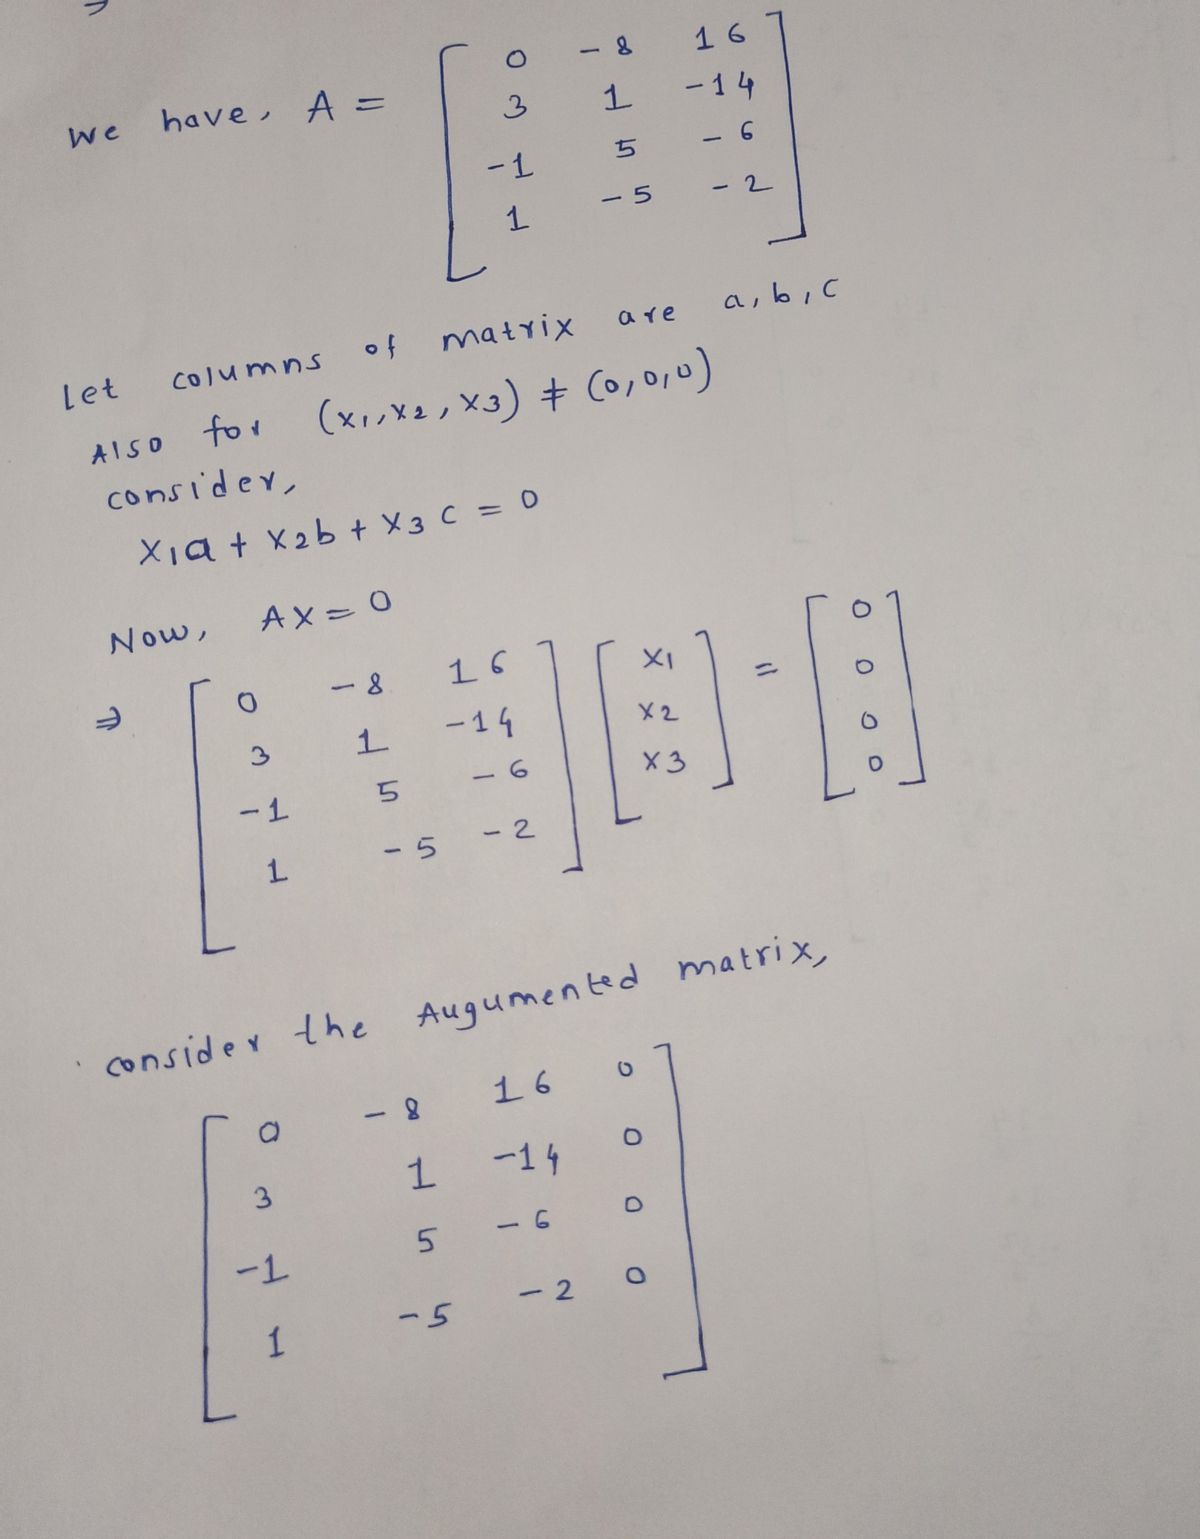 We have, A = [ 0 -8 16
3 1 -14
-1 5 -6
1 -5 -2 ]
Let columns of matrix are a, b, c
Also for (x1, x2, x3) ≠ (0, 0, 0)
consider,
x1a + x2b + x3c = 0
Now, AX = 0
⇒ [ 0 -8 16 ] [ x1 ] = [ 0 ]
3 1 -14 x2 0
-1 5 -6 x3 0
1 -5 -2 0
consider the Augumented matrix,
[ 0 -8 16 0
3 1 -14 0
-1 5 -6 0
1 -5 -2 0 ]